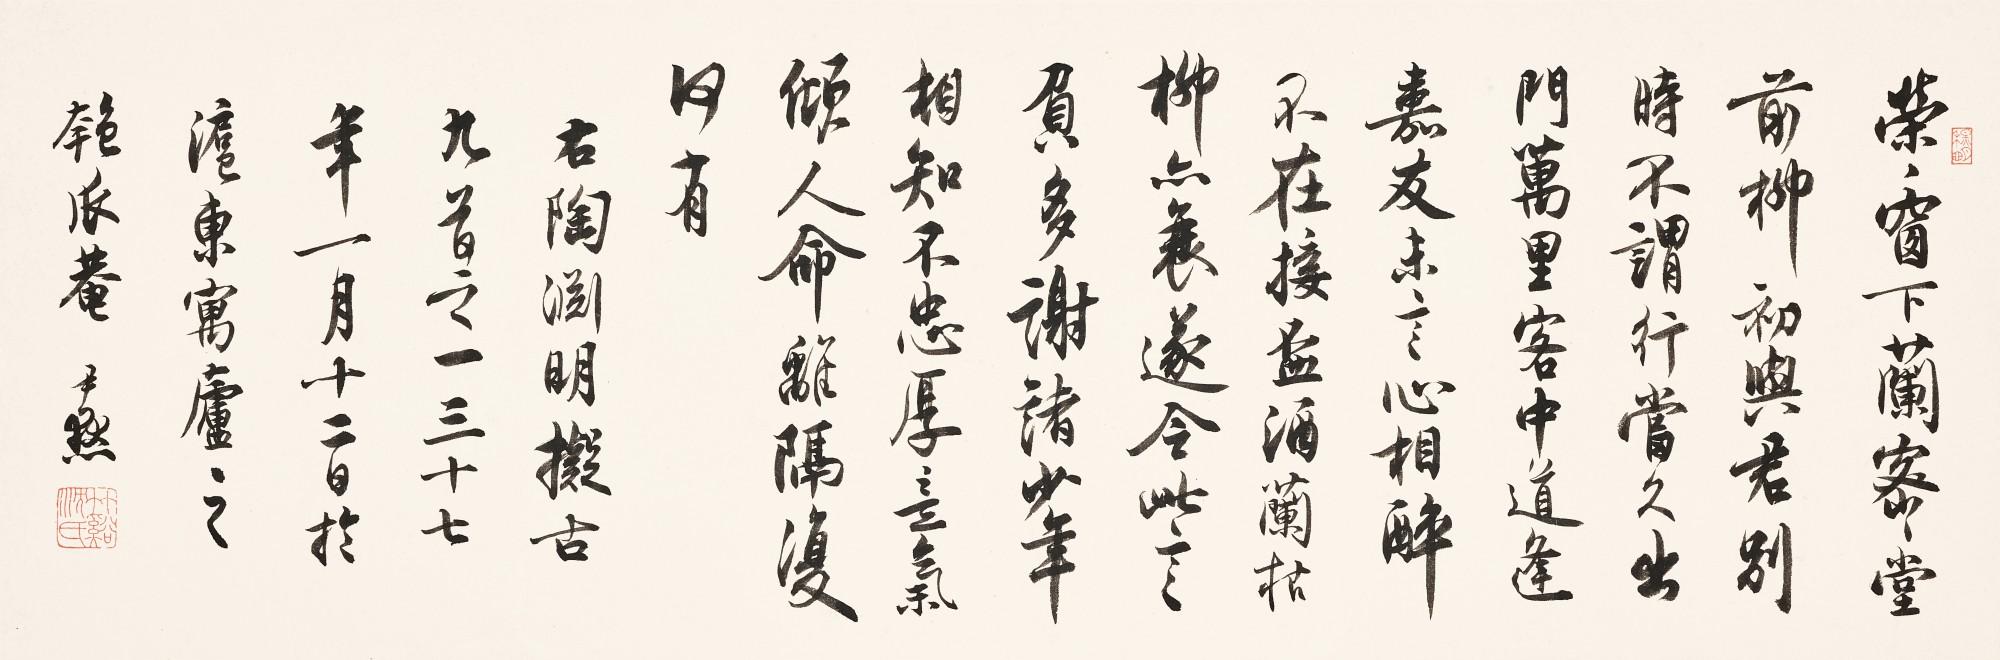 榮々窗下蘭密々堂
前柳初與君別
時不謂行當久出
門萬里客中道逢
嘉友未言心相醉
不在接盃酒蘭枯
柳亦衰遂令此言
負多謝諸少年
相知不忠厚意氣
傾人命離隔復
何有
右陶淵明擬古
九首之一三十七
年一月十二日於
滬東寓廬之
匏瓜菴 尹默
竹谿沈氏